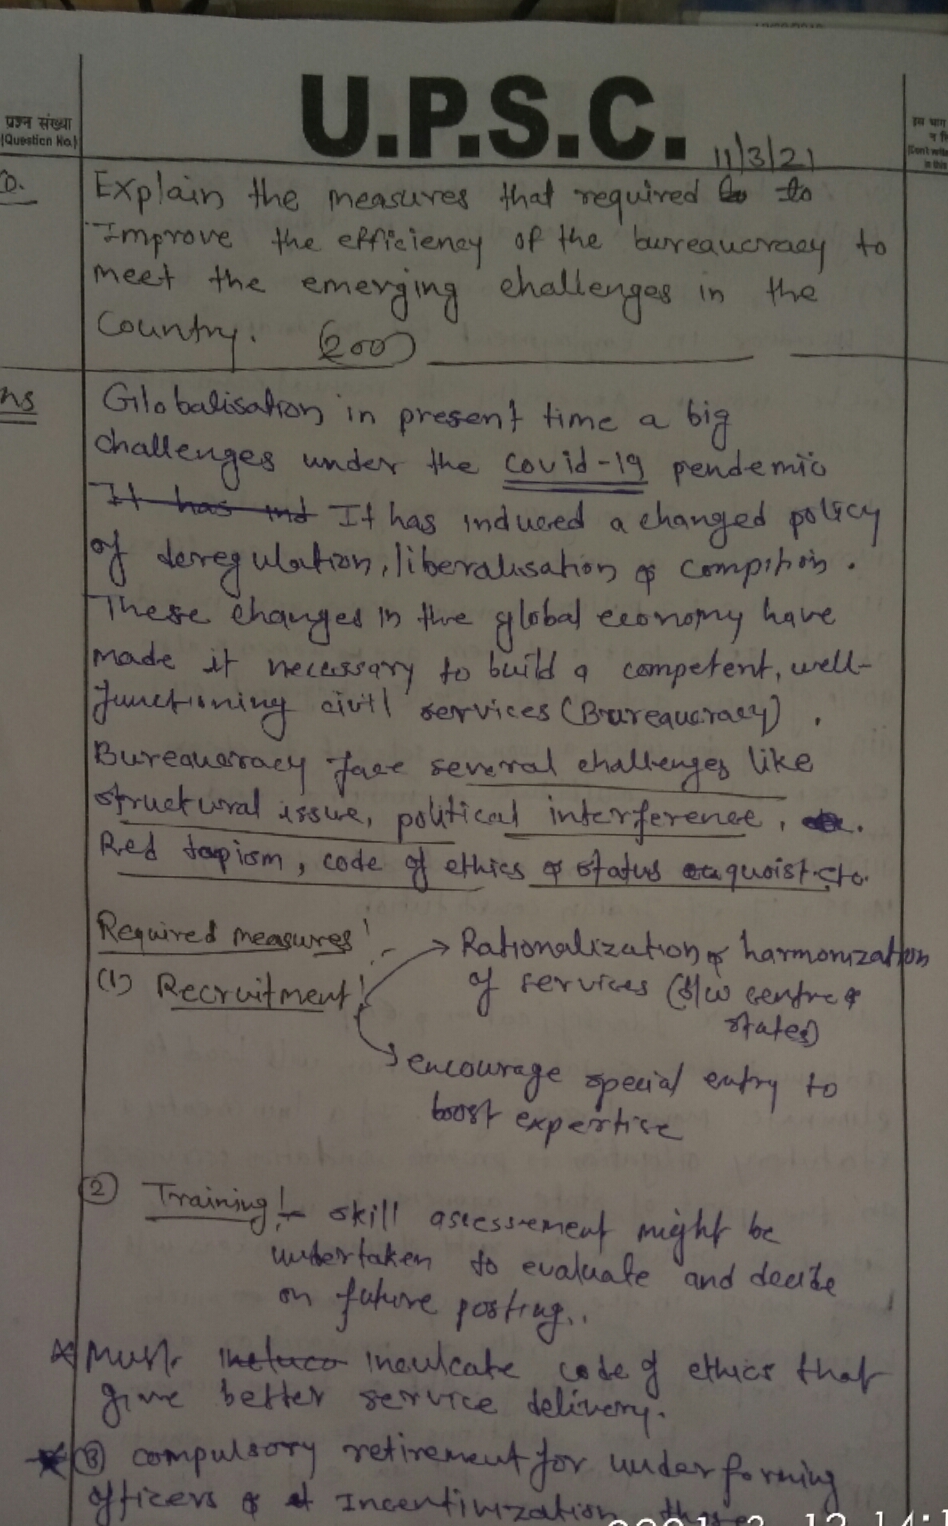 U.P.S.C.
प्रश्न संख्या
(Question No.)
11/3/21
Explain the measures that required to to
Improve the efficiency of the bureaucracy to
meet the emerging challenges in the
Country. (200)
ns
Globalisation in present time a big
challenges under the covid-19 pendemic
It has ind It has induced a changed policy
of deregulation, liberalisation & compition.
These changes in the global economy have
made it necessary to build a competent, well-
functioning civil services (Bureaucracy).
Bureaucracy face several challenges like
structural issue, political interference,
Red tapism, code of ethics & status quoist. etc.
Required measures:-
(1) Recruitment:
→ Rationalization & harmonization
of services (b/w centre &
states)
→ encourage special entry to
boost expertise
(2) Training:- skill assessement might be
undertaken to evaluate and decide
on future posting..
* Must inculcate code of ethics that
give better service delivery.
* (3) compulsory retirement for underforming
officers & Incentivization